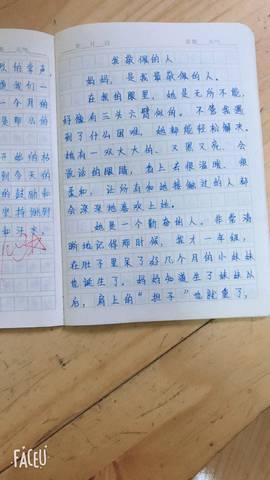 我敬佩的人
妈妈,是我最敬佩的人。
在我的眼里,她是无所不能,
好像有三头六臂似的。不管我遇
到了什么困难,她都能轻松解决。
她有一双大大的、又黑又亮、会
说话的眼睛,看上去很温暖、很
柔和,让所有和她接触过的人都
会深深地喜欢上她。
她是一个勤奋的人。非常清
晰地记得那时候,我才一年级,
在肚子里呆了好几个月的小妹妹
也诞生了。妈妈知道生了妹妹以
后,肩上的“担子”也就重了,
的掌声
我们一
一个月的
是那么的
到今天的
的鼓励和
坚持到
FACEU